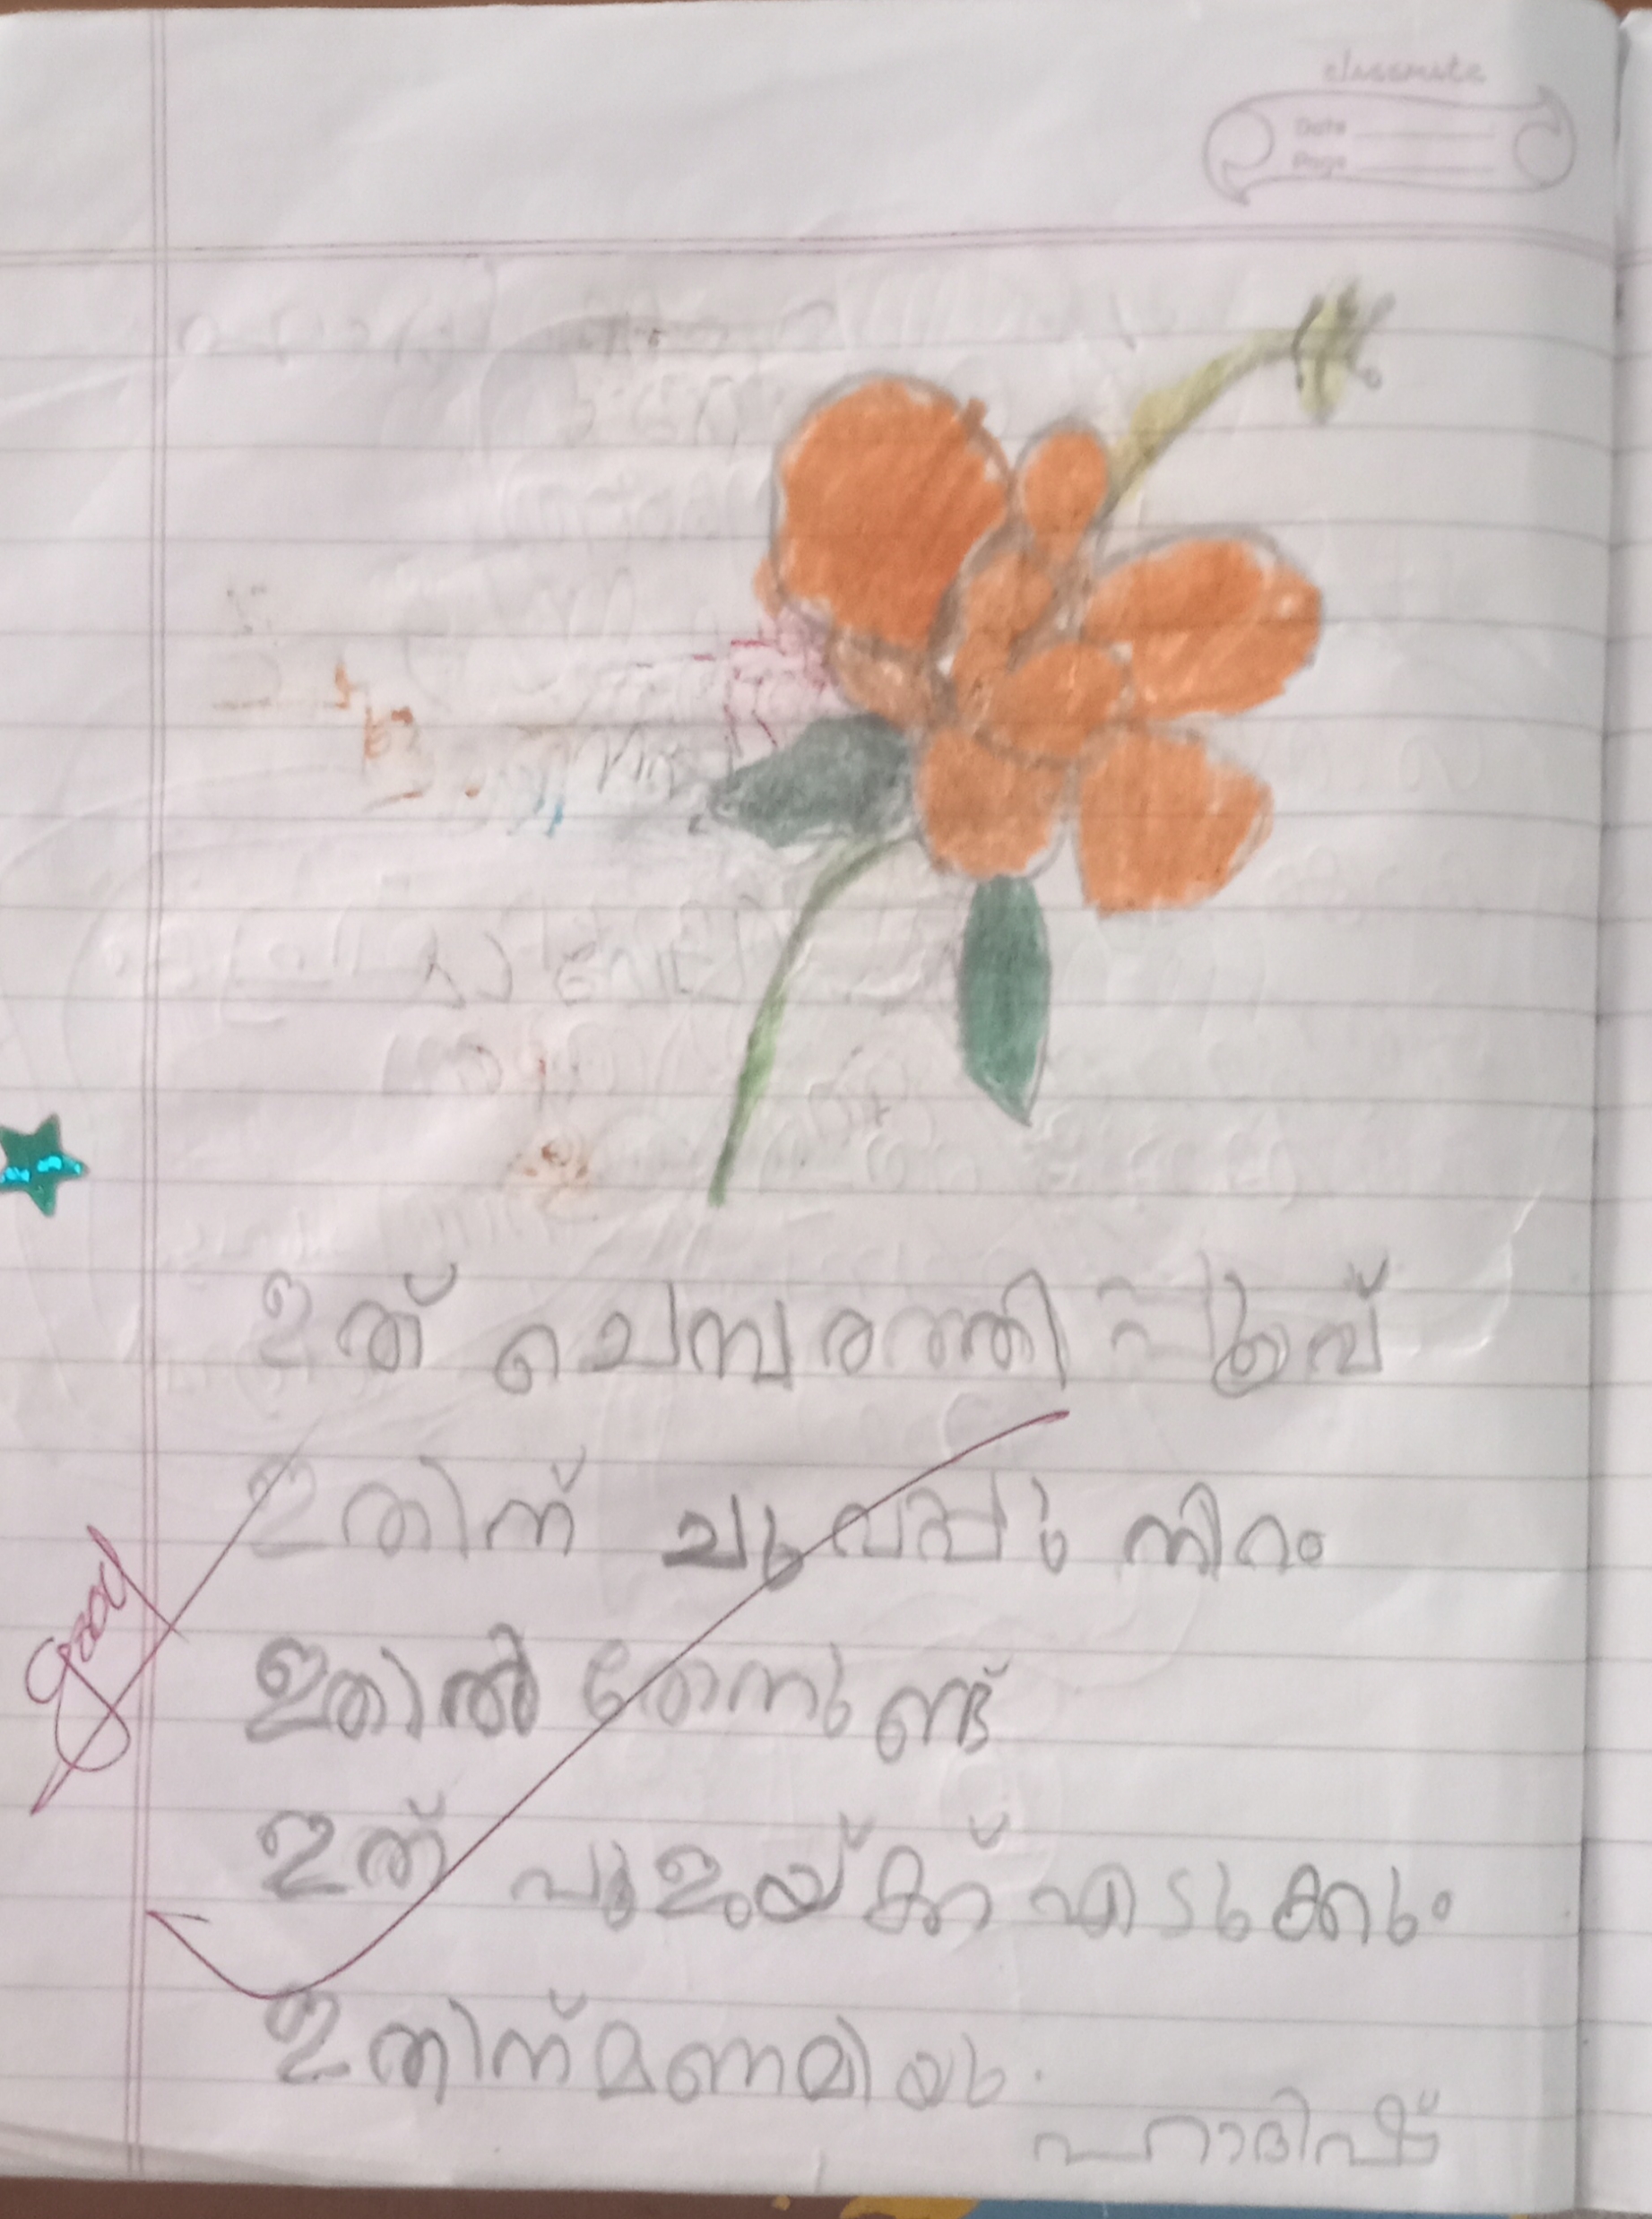 classmate
Date
Page
ഇത് ചെമ്പരത്തി പൂവ്
ഇതിന് ചുവപ്പു നിറം
ഇതിൽ തേനുണ്ട്
good
ഇത് എടുക്കും
ഇതിന് മണമി